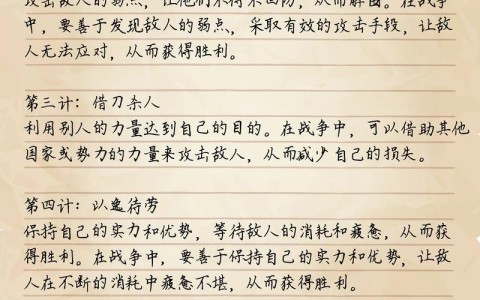 攻击敌人的弱点，让他们不得不回防，从而解围。在战争
中，要善于发现敌人的弱点，采取有效的攻击手段，让敌
人无法应对，从而获得胜利。
第三计：借刀杀人
利用别人的力量达到自己的目的。在战争中，可以借助其他
国家或势力的力量来攻击敌人，从而减少自己的损失。
第四计：以逸待劳
保持自己的实力和优势，等待敌人的消耗和疲惫，从而获
得胜利。在战争中，要善于保持自己的实力和优势，让敌
人在不断的消耗中疲惫不堪，从而获得胜利。